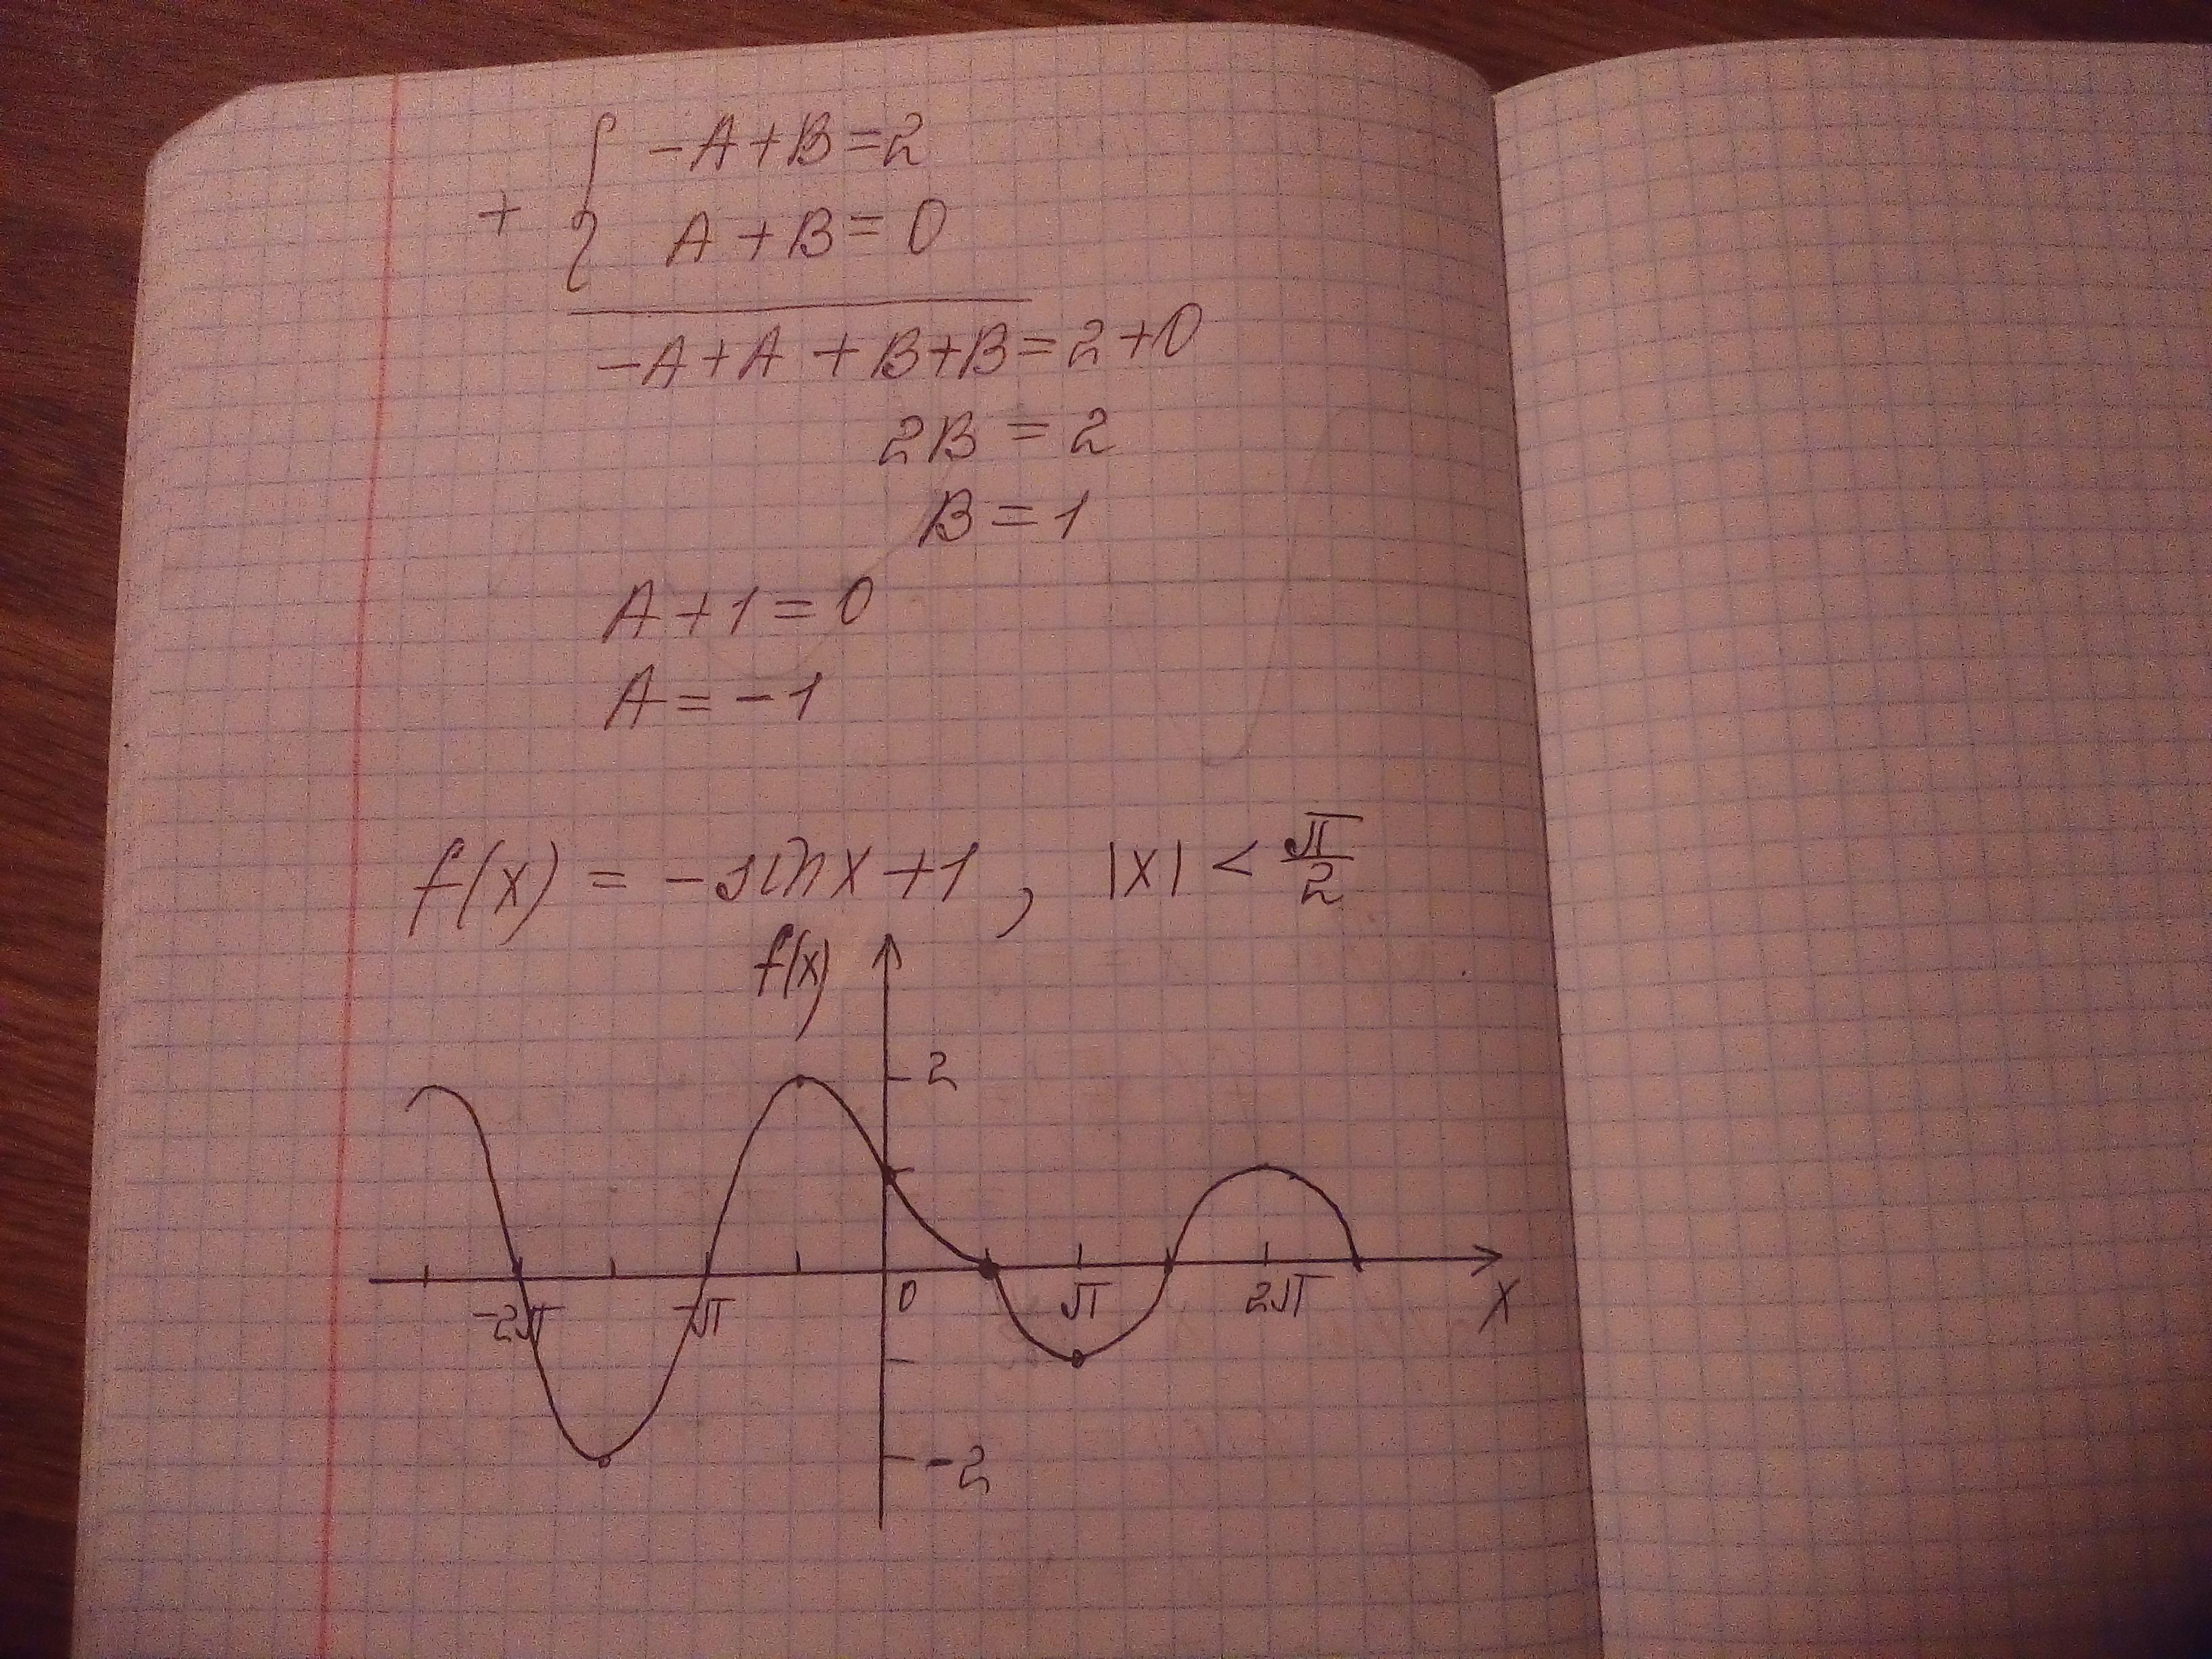 + { -A+B=2
A+B=0
-A+A+B+B=2+0
2B=2
B=1
A+1=0
A=-1
f(x) = -sinx+1, |x| < π/2
f(x)
2
-2π -π 0 π 2π x
-2